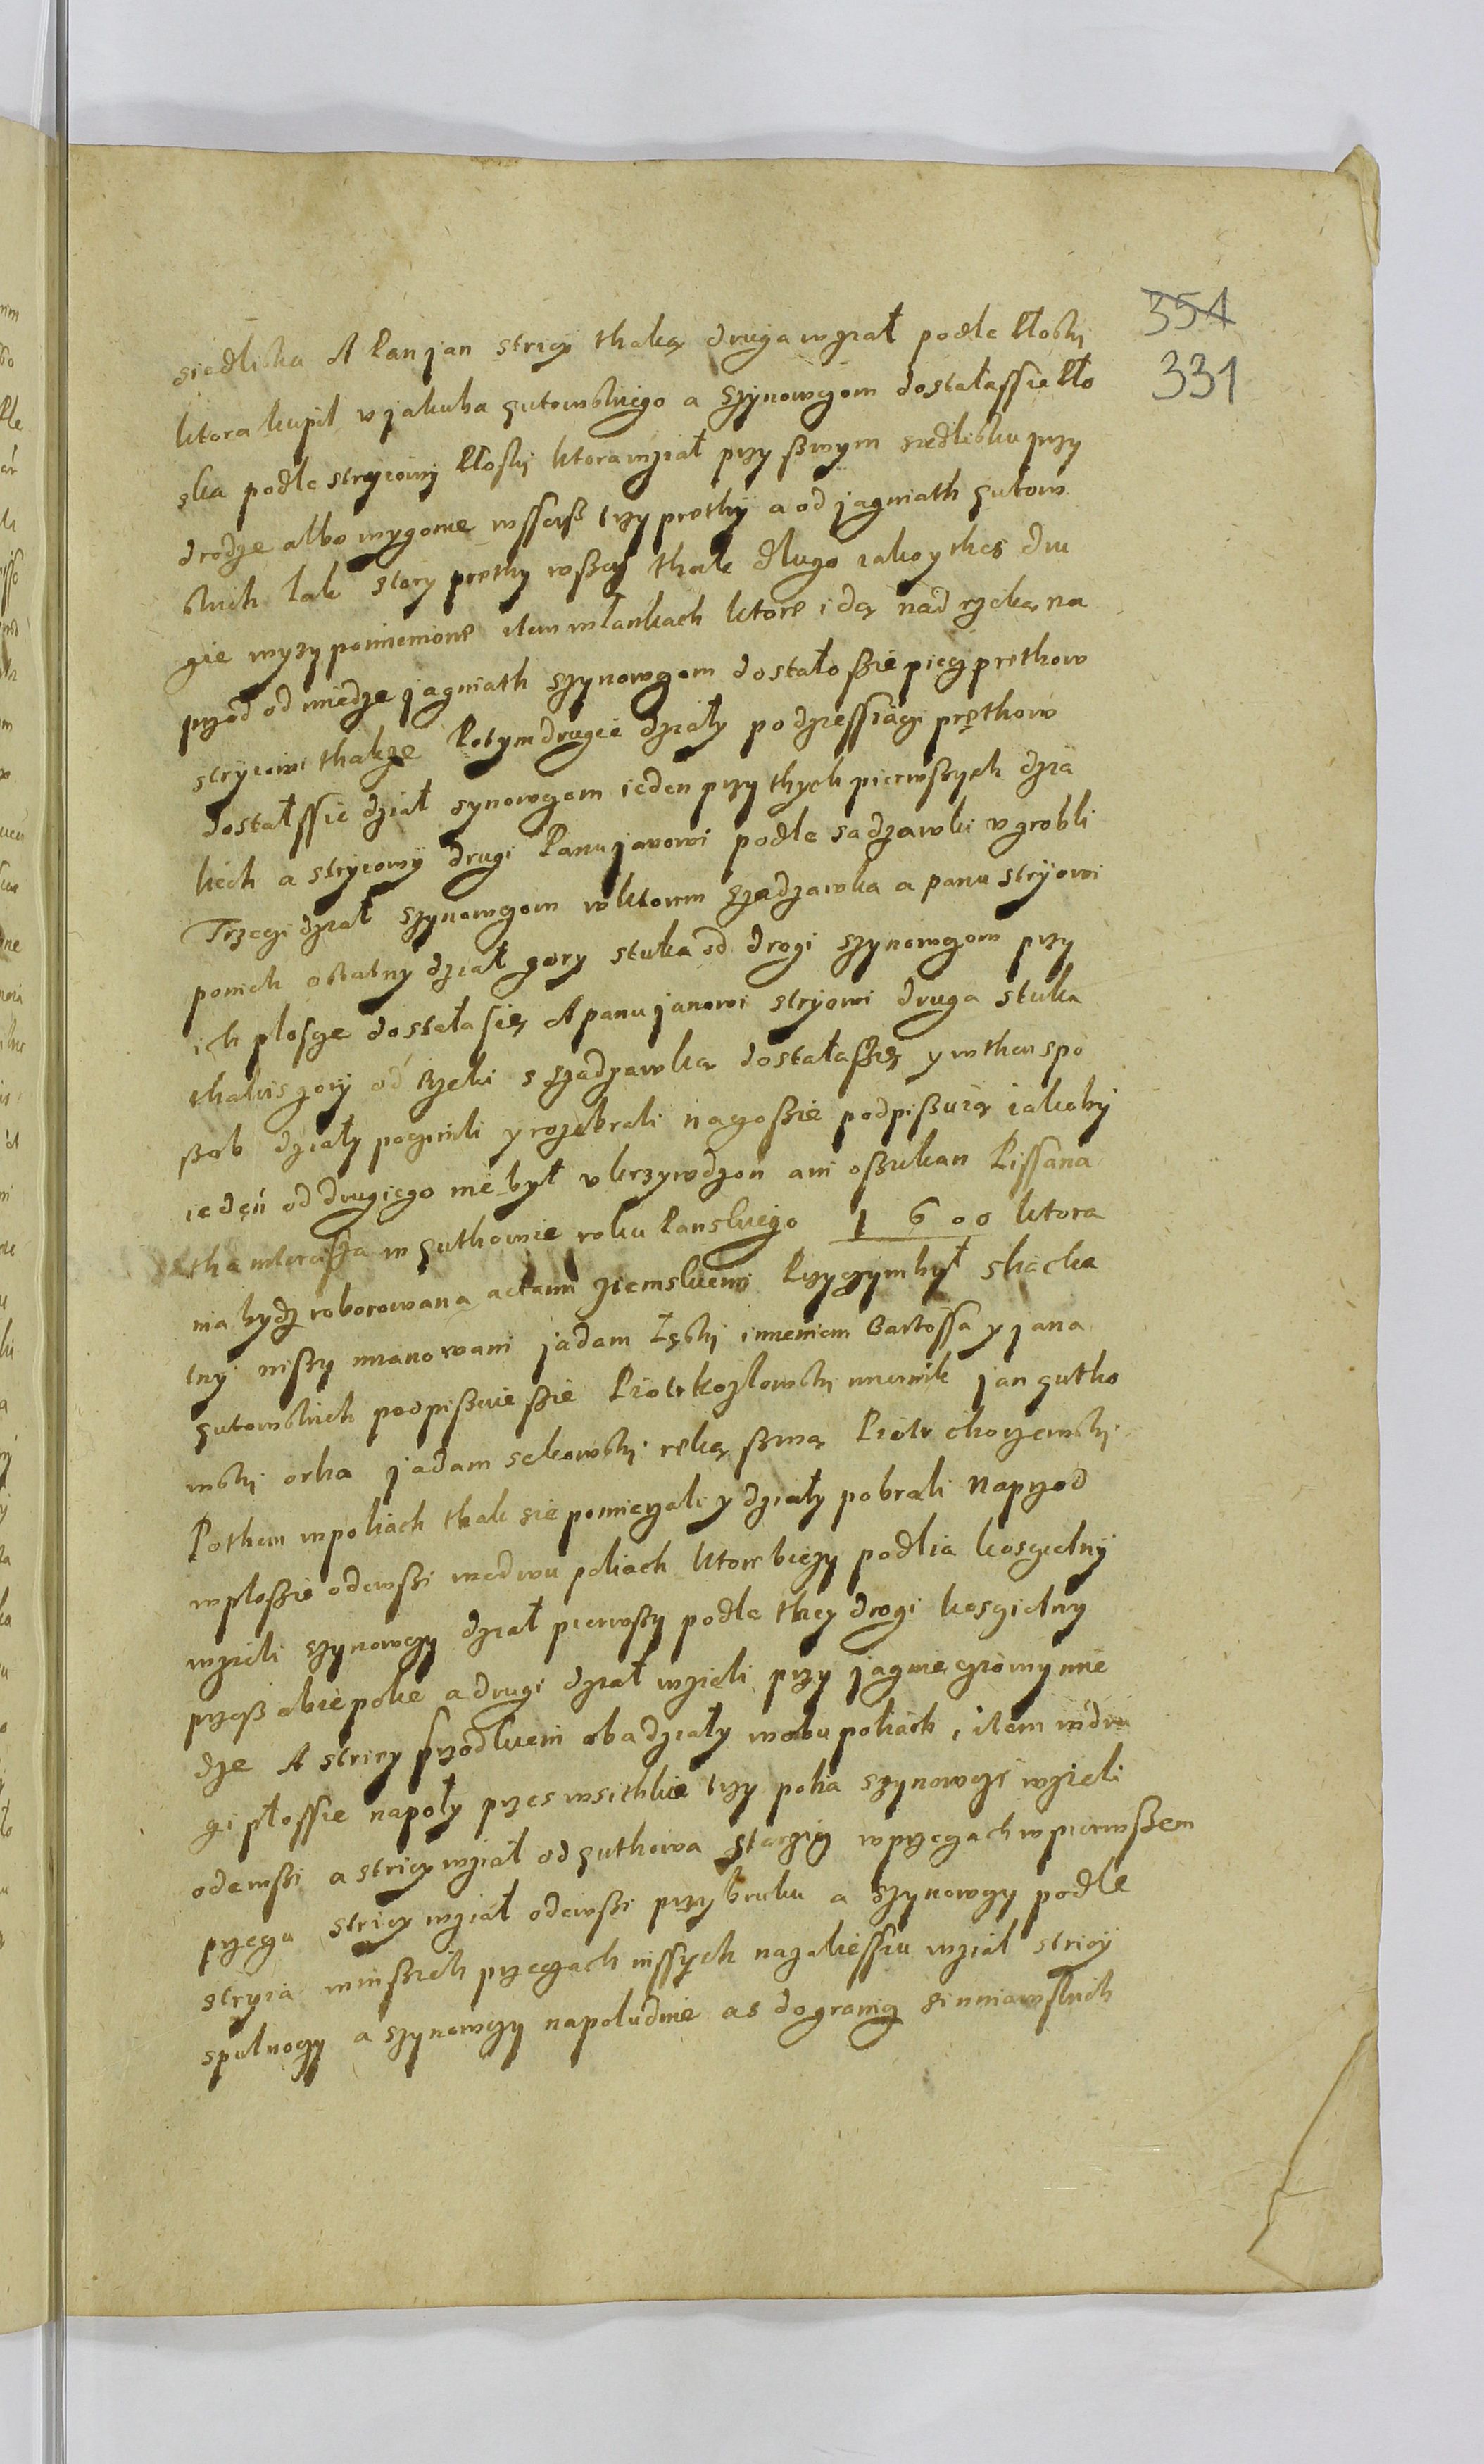 354
331
siedliska A Pan jan stricy thaką druga wział podle Płosky
ktora kupił u jakuba gutowskiego a szynowczom dostałassie Pło
ska podle stryiowy Płosky ktora wział przy swym siedlisku przy
drodze albo wygonie wsserß trzy prethy a od jagniath gutow
skich łak stery prethy wßerß thak długo iako y thes dru
gie wyzy pomienione item włankach ktore idą nad rzeką na
przod od miedze jagniath szynowczom dostało ßie piecz prethow
stryiowi thakze Potym drugie działy po dziessiaci prethow
dostałssie dział synowczom ieden przy thych pierwßych dzia
łiech a stryiowy drugi Panu janowi podle sadzawki u grobli
Trzeci dział szynowczom w ktorem szadzawka a panu stryiowi
ponich ostatny dział gory stuka od drogi szynowczom przy
ich płosce dostała się A panu janowi stryiowi druga stuka
thakis gory od rzeki s szadzawką dostałaßię y w then spo
ßob działy poczinili y rozebrali na czo ßie podpißuią iakoby
ieden od drugiego nie był ukrzywdzon ani oßukan Pissana
tha intercißa w guthowie roku Panskiego 1600 ktora
ma bydz roborowana actami ziemskiemi Przyczym był slachta
tny nißy mianowani jadam Zęsky imieniem Bartossa y jana
gutowskich podpißuie ßie Piotr kozłowsky miernik jan gutho
wsky orka jadam sekowsky ręką swą Piotr chorzewsky
Pothem w poliach thak sie pomierzali y działy pobrali Naprzod
w płoßie odewßi we dwu poliach ktore biezy podlia koscielny
wzieli szynowczy dział pierwßy podle they drogi koscielny
przeß obie polie a drugi dział wzieli przy jagnieczowy mie
dze A stricy srzodkiem oba działy w obu poliach, item w dru
gi płossie napoły przes wsithkie trzy polia szynowczi wzieli
odewßi a stricy wział od guthowa starzig w przeczach w pierwßem
przeczu stricy wział odewßi przy bruku a szynowczy podle
stryia w inßich przeczach nissych na zaliessiu wział stricy
s pulnoczy a szynowczy na poludnie as do granicz sinniawskich